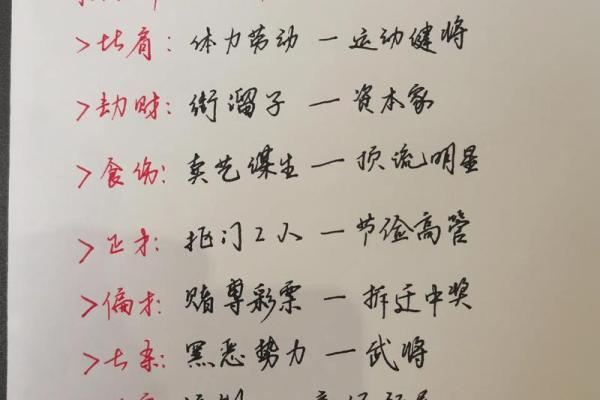 >比肩：体力劳动 — 运动健将
>劫财：街溜子 — 资本家
>食伤：卖艺谋生 — 顶流明星
>正才：抠门工人 — 节俭高管
>偏才：赌尊彩票 — 拆迁中奖
>七杀：黑恶势力 — 武将